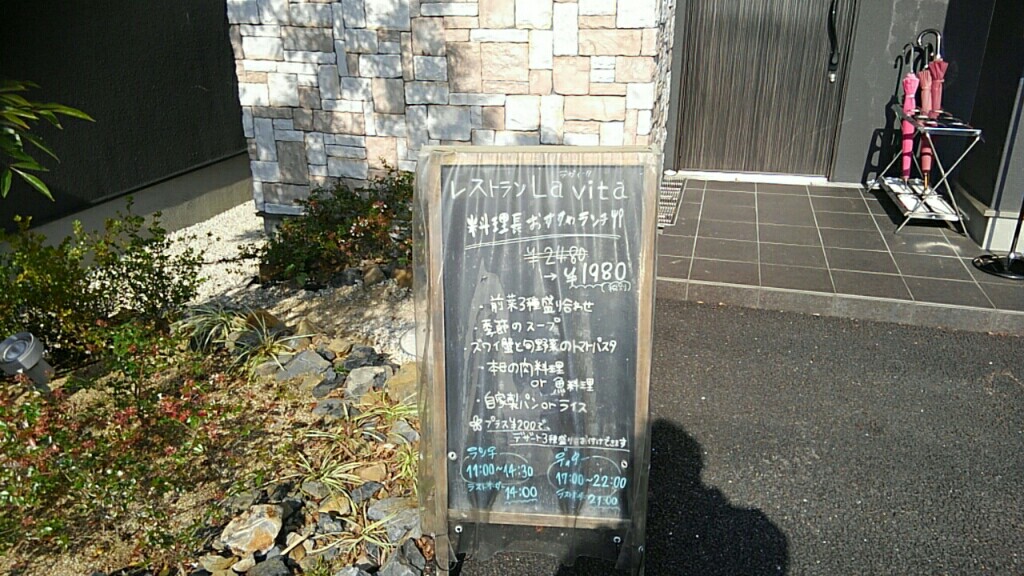 ラヴィータ
レストラン La vita
料理長おすすめランチ!!
¥2480
→¥1980(税別)
・前菜3種盛り合わせ
・季節のスープ
・ズワイ蟹と旬野菜のトマトパスタ
・本日の肉料理
or 魚料理
・自家製パン or ライス
プラス¥200で、
デザート3種盛りお付けできます
ランチ
11:00~14:30
ラストオーダー
14:00
ディナー
17:00~22:00
ラストオーダー 21:00